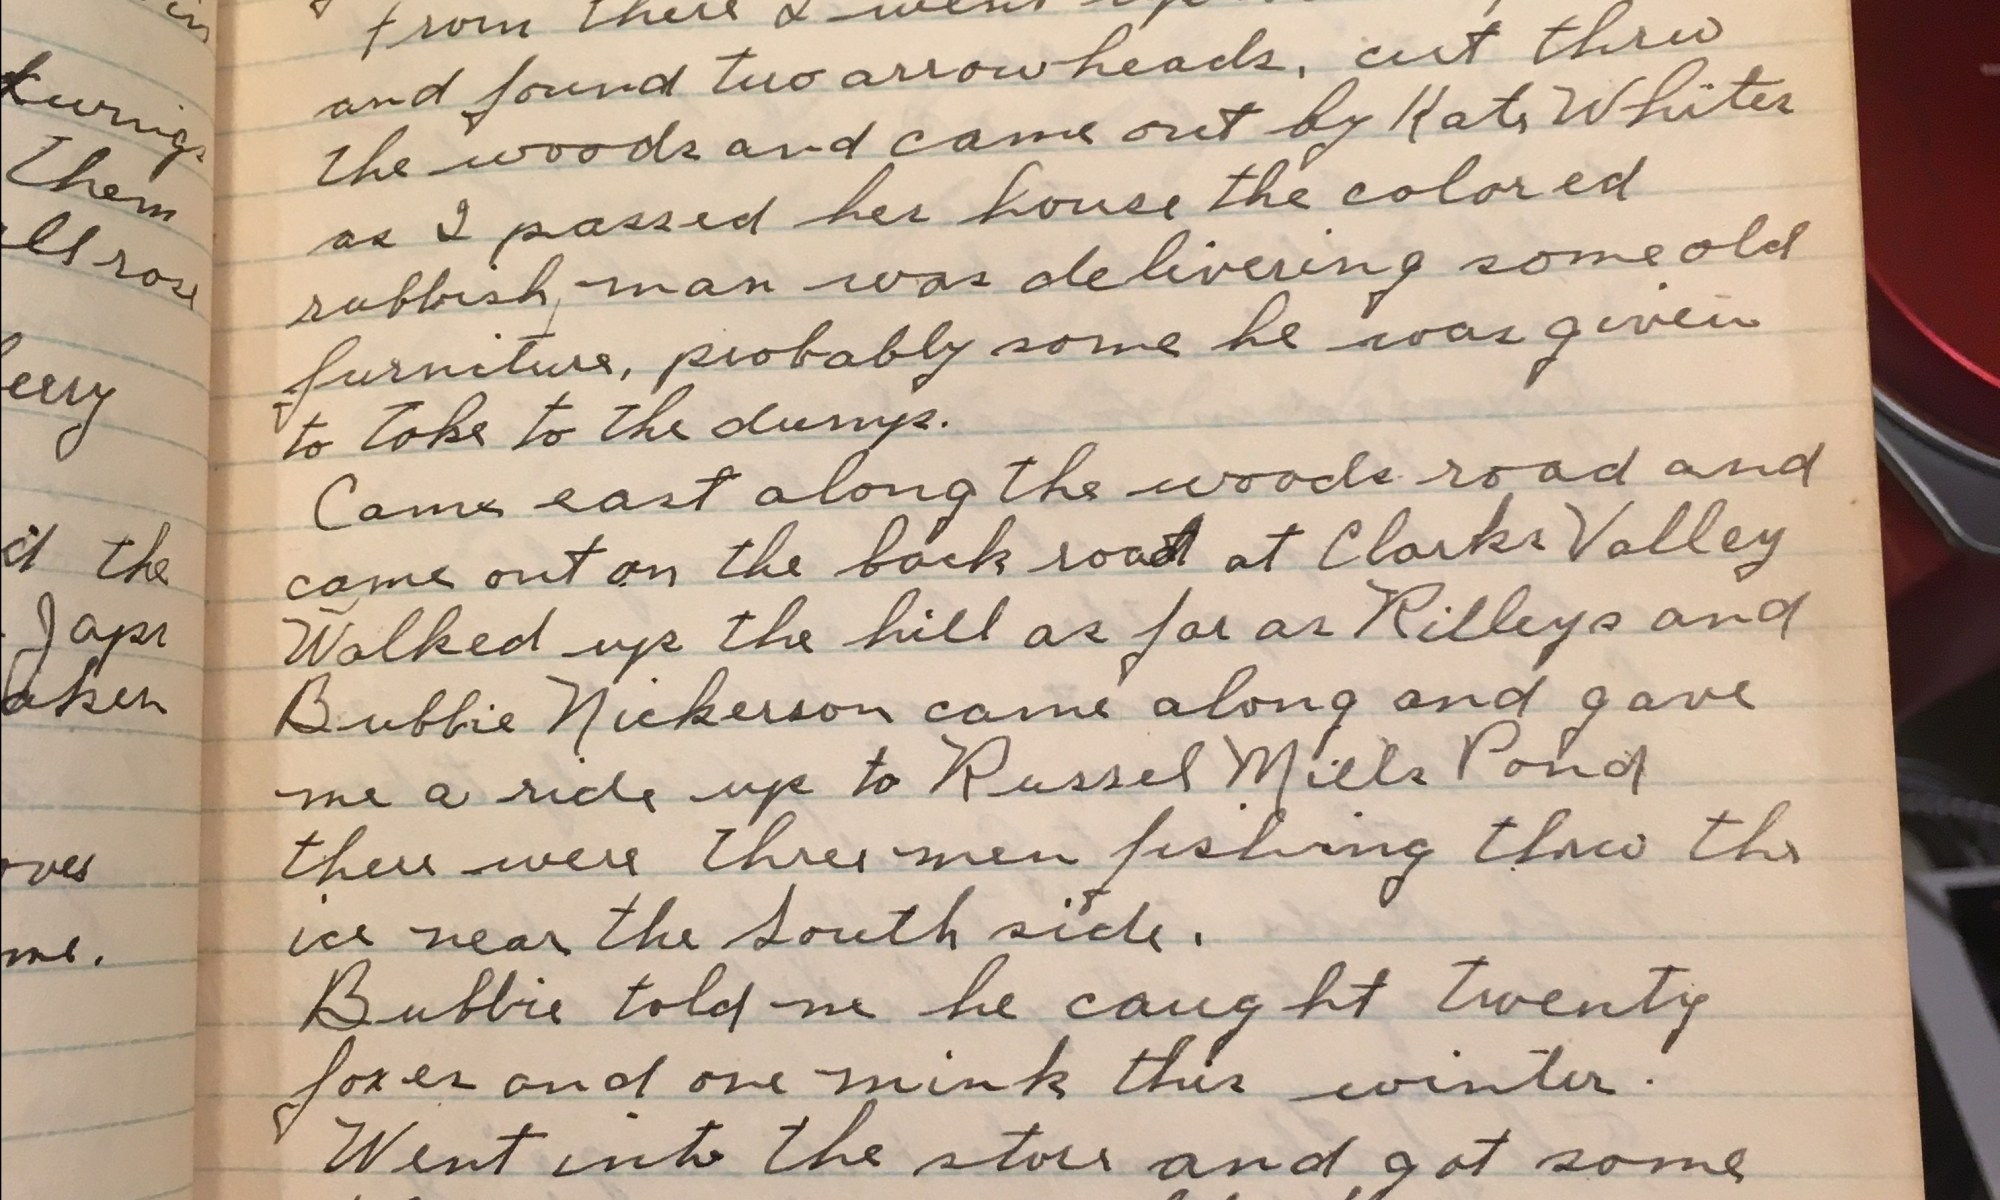 in
turnips
them
all rose
the
Japs
taken
me.
From there I went up
and found two arrowheads, cut thru
the woods and came out by Kate Whites
as I passed her house the colored
rubbish, man was delivering some old
furniture, probably some he was given
to take to the dump.
Came east along the woods road and
came out on the back road at Clarks Valley
Walked up the hill as far as Rilleys and
Bubbie Nickerson came along and gave
me a ride up to Russel Mills Pond
there were three men fishing thru the
ice near the South side.
Bubbie told me he caught twenty
foxes and one mink this winter.
Went into the store and got some